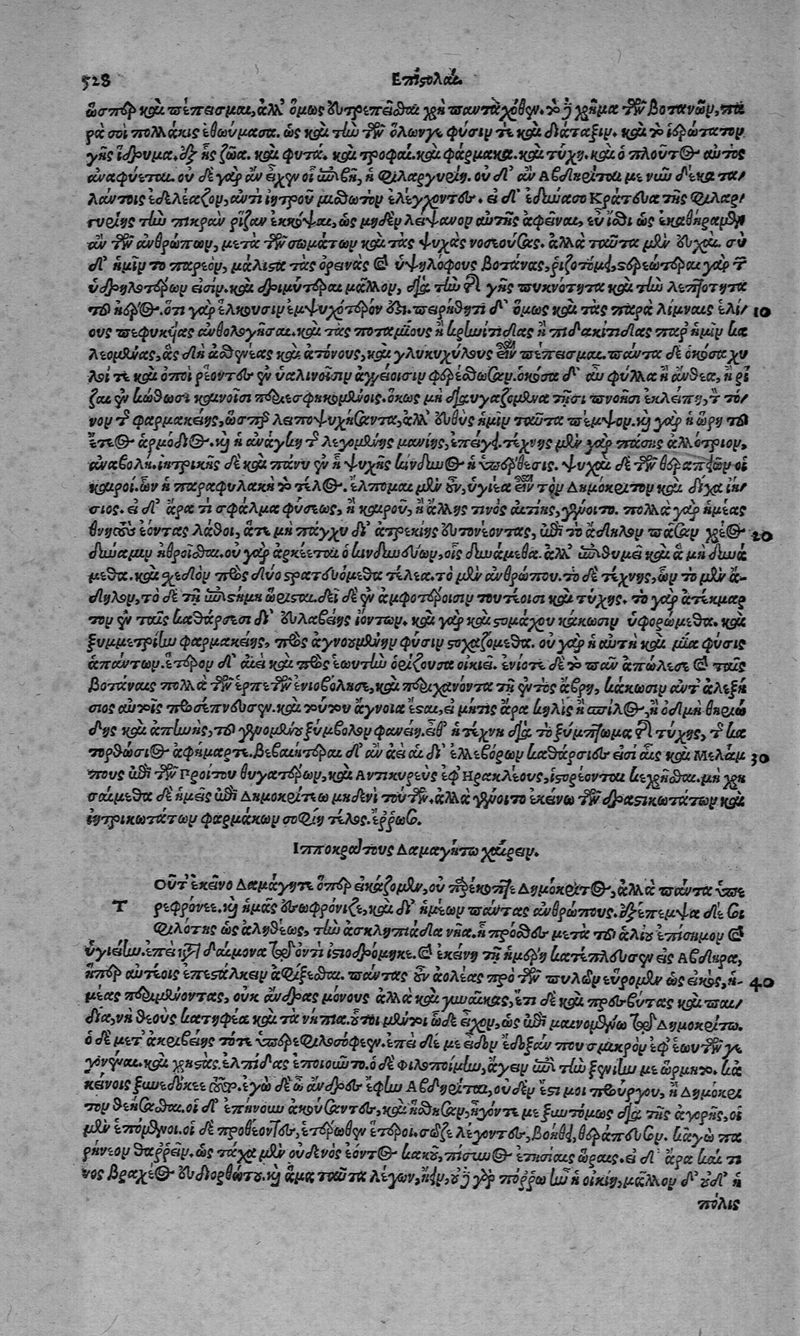 528 Ἐπιστολαί.
ὥσπερ καὶ πέπεισμαι, ἀλλ' ὅμως εὐτρεπεῖσθαι χρὴ πανταχόθεν. τὸ δὲ χρῆμα τῶν βοτανῶν, πα
ρὰ σοὶ πολλάκις ἐθαύμασα. ὡς καὶ τὴν τῶν ὅλων γε φύσιν τε καὶ διάταξιν. καὶ τὸ ἱερώτατον
γῆς ἵδρυμα. ἐξ ἧς ζῶα. καὶ φυτά. καὶ τροφαί. καὶ φάρμακα. καὶ τύχη. καὶ ὁ πλοῦτος αὐτὸς
ἀναφύεται. οὐ δὲ γὰρ ἂν εἶχεν οἷ ἐπιβῆ, ἡ φιλαργυρίη. οὐ δ' ἂν Ἀβδηρῖται με νῦν δέκα τα/
λάντοις ἐδελέαζον, ἀντὶ ἰητροῦ μισθωτὸν ἐλέγχοντες. εἰ δ' ἐδύνασο Κράτευα τῆς φιλαρ/
γυρίης τὴν πικρὰν ῥίζαν ἐκκόψαι, ὡς μηδὲν λείψανον αὐτῆς ἀφεῖναι, εὖ ἴσθι ὡς ἐκαθήραμεν
ἂν τῶν ἀνθρώπων, μετὰ τῶν σωμάτων καὶ τὰς ψυχὰς νοσεούσας. ἀλλὰ ταῦτα μὲν εὐχαί. σὺ
δ' ἡμῖν τὸ παρεὸν, μάλιστα τὰς ὀρεινὰς καὶ ὑψηλόφους βοτάνας, ῥιζοτόμει, στερεώτεραι γὰρ τῶν
ὑδρηλοτέρων εἰσὶν. καὶ δριμύτεραι μᾶλλον, διὰ τὴν τῆς γῆς πυκνότητα καὶ τὴν λεπτότητα
τοῦ ἠέρος. ὅτι γὰρ ἕλκουσιν ἐμψυχότερόν ἐστι. πειρήθητι δ' ὅμως καὶ τὰς παρὰ λίμναις ἕλί/ 10
ους πεφυκυίας ἀνθολογῆσαι. καὶ τὰς ποταμίους ἢ κρηνίτιδας ἢ πιδακίτιδας παρ' ἡμῖν κα
λεομένας, ἃς δὴ ἀσθενέας καὶ ἀτόνους, καὶ γλυκυχύλους εἶναι πέπεισμαι. πάντα δὲ ὁκόσα χυ
λοί τε καὶ ὀποὶ ῥέοντες ἐν ὑαλίνοισιν ἀγγείοισιν φερέσθωσαν. ὁκόσα δ' αὖ φύλλα ἢ ἄνθεα, ἢ ῥί
ζαι ἐν κώθωσι καινοῖσι περιεσφηκωμένοις. ὅκως μὴ διαυγαζόμενα τῆσι πνοῆσι ἐκλείπῃ, τὸν τό/
νον τῆς φαρμακείης, ὥσπερ λειποψυχήσαντα, ἀλλ' εὐθὺς ἡμῖν ταῦτα πέμψον. καὶ γὰρ ἡ ὥρη τοῦ
ἔτεος ἁρμόδιος. καὶ ἡ ἀνάγκη τῆς λεγομένης μανίης, ἐπείγει. τέχνης μὲν γὰρ πάσης ἀλλότριον,
ἀναβολή. ἰητρικῆς δὲ καὶ πάνυ ἐν ᾗ ψυχῆς κίνδυνος ἡ ὑπέρθεσις. ψυχαὶ δὲ τῶν θεραπειῶν οἱ
καιροί. ὧν ἡ παραφυλακὴ τὸ τέλος. ἔλπομαι μὲν οὖν, ὑγιέα εἶναι τὸν Δημόκριτον καὶ δίχα ἰή/
σιος. εἰ δ' ἄρα τι σφάλμα φύσεως, ἢ καιροῦ, ἢ ἄλλης τινὸς αἰτίης, γένοιτο. πολλὰ γὰρ ἡμέας
θνητοὺς ἐόντας λάθοι, ἅτε μὴ πάγχυ δι' ἀτρεκίης εὐτονέοντας, ἐπὶ τὸ ἄδηλον πᾶσαν χρέος 20
δύναμιν ἠθροῖσθαι. οὐ γὰρ ἀρκέεται ὁ κινδυνεύων, οἷς δυνάμεθα. ἀλλ' ἐπιθυμεῖ καὶ ἃ μὴ δυνά
μεθα. καὶ σχεδὸν πρὸς δύο στρατευόμεθα τέλεα. τὸ μὲν ἀνθρώπου. τὸ δὲ τέχνης, ὧν τὸ μὲν ἄ-
δηλον, τὸ δὲ τῇ ἐπιστήμῃ ὥρισται. δεῖ δὲ ἐν ἀμφοτέροισιν τουτέοισι καὶ τύχης. τὸ γὰρ ἀτέκμαρ
τον ἐν ταῖς καθάρσεσι δι' εὐλαβείης ἰόντων. καὶ γὰρ καὶ στομάχου κάκωσιν ὑφορώμεθα. καὶ
ξυμμετρίην φαρμακείης, πρὸς ἀγνοουμένην φύσιν στοχαζόμεθα. οὐ γὰρ ἡ αὐτὴ καὶ μία φύσις
ἁπάντων. ἕτερον δ' ἀεὶ καὶ πρὸς ἑωυτὴν ὁρίζουσα οἰκιεῖ. ἐνίοτε δὲ τὸ πᾶν ἀπώλεσε καὶ ταῖς
βοτάναις πολλὰ τῶν ἑρπετῶν ἐνιοβόλησε, καὶ περιχανόντα τῇ ἐντὸς αὔρῃ, κάκωσιν ἀντ' ἀλεξή
σιος αὐτοῖς προσέπνευσεν. καὶ τούτου ἄγνοια ἔσται, εἰ μή τις ἄρα κηλὶς ἢ σπίλος, ἢ ὀδμὴ θηριώ
δης καὶ ἀπηνὴς, τοῦ γενομένου ξύμβολον φανείη. εἶθ' ἡ τέχνη διὰ τὸ ξύμπτωμα τῆς τύχης, τῆς κα
τορθώσιος ἀφήμαρτε. βεβαιότεραι δ' ἂν ἀεὶ αἱ δι' ἐλλεβόρων καθάρσιές εἰσὶ αἷς καὶ Μελάμ 30
πους ἐπὶ τῶν Προίτου θυγατέρων, καὶ Ἀντικυρεὺς ἐφ' Ἡρακλέους, ἱστορέονται κεχρῆσθαι. μὴ χρη
σαίμεθα δὲ ἡμεῖς ἐπὶ Δημοκρίτῳ μηδενὶ τούτων. ἀλλὰ γένοιτο ἐκείνῳ τῶν δραστικωτάτων καὶ
ἰητρικωτάτων φαρμάκων σοφίη τέλος. ἔρρωσο.
Ἱπποκράτους Δαμαγήτῳ χαίρειν.
Τ ΟΥΤ' ἐκεῖνο Δαμάγητε ὅπερ εἰκάζομεν, οὐ παρέκοπτε Δημόκριτος, ἀλλὰ πάντα ὑπε
ρεφρόνεε. καὶ ἡμᾶς ἐσωφρόνιζε, καὶ δι' ἡμέων πάντας ἀνθρώπους. ἐξέπεμψα δέ σοι
φιλότης ὡς ἀληθέως, τὴν ἀσκληπιάδα νῆα. ᾗ πρόσθες μετὰ τοῦ ἁλίου ἐπίσημον καὶ
ὑγιείην. ἐπεὶ κατὰ δαίμονα τῷ ὄντι ἱστιοδρόμηκε. καὶ ἐκείνῃ τῇ ἡμέρῃ κατέπλευσεν εἰς Ἄβδηρα,
ᾗπερ αὐτέοις ἐπεστάλκειν ἀφίξεσθαι. πάντας οὖν ἀολέας πρὸ τῶν πυλῶν εὕρομεν ὡς εἰκὸς, ἡ- 40
μέας περιμένοντας, οὐκ ἄνδρας μόνους ἀλλὰ καὶ γυναῖκας, ἔτι δὲ καὶ πρεσβύτας καὶ παι/
δία, νὴ θεοὺς κατηφέα καὶ τὰ νήπια. οὗτοι μέντοι ὧδε εἶχον, ὡς ἐπὶ μαινομένῳ τῷ Δημοκρίτῳ.
ὁ δὲ μετ' ἀκριβείης τότε ὑπερεφιλοσόφεεν. ἐπεὶ δέ με εἶδον ἔδοξάν που σμικρὸν ἐφ' ἑωυτῶν γε
γονέναι. καὶ χρηστὰς ἐλπίδας ἐποιοῦντο. ὁ δὲ Φιλοποίμην, ἄγειν ἐπὶ τὴν ξενίην με ὥρμητο. κἀ
κείνοις ξυνεδόκεε τοῦτο. ἐγὼ δὲ ὦ ἄνδρες ἔφην Ἀβδηρῖται, οὐδέν ἐστί μοι προὔργου, ἢ Δημόκρι
τον θεήσασθαι. οἱ δ' ἐπῄνουν ἀκούσαντες, καὶ ἥσθησαν, ἦγόν τέ με ξυντόμως διὰ τῆς ἀγορῆς, οἱ
μὲν ἑπόμενοι. οἱ δὲ προθέοντες, ἑτέρωθεν ἕτεροι. σῶζε λέγοντες, βοήθει, θεράπευσον. κἀγὼ πα
ρῄνεον θαρρεῖν. ὡς τάχα μὲν οὐδενὸς ἐόντος κακοῦ, πίσυνος ἐτησίαις ὥραις. εἰ δ' ἄρα καί τι
νος βραχέος εὐδιορθώτου. καὶ ἅμα ταῦτα λέγων, ᾔειν, οὐδὲ γὰρ πόρρω ἦν ἡ οἰκίη, μᾶλλον δ' οὐδ' ἡ
πόλις